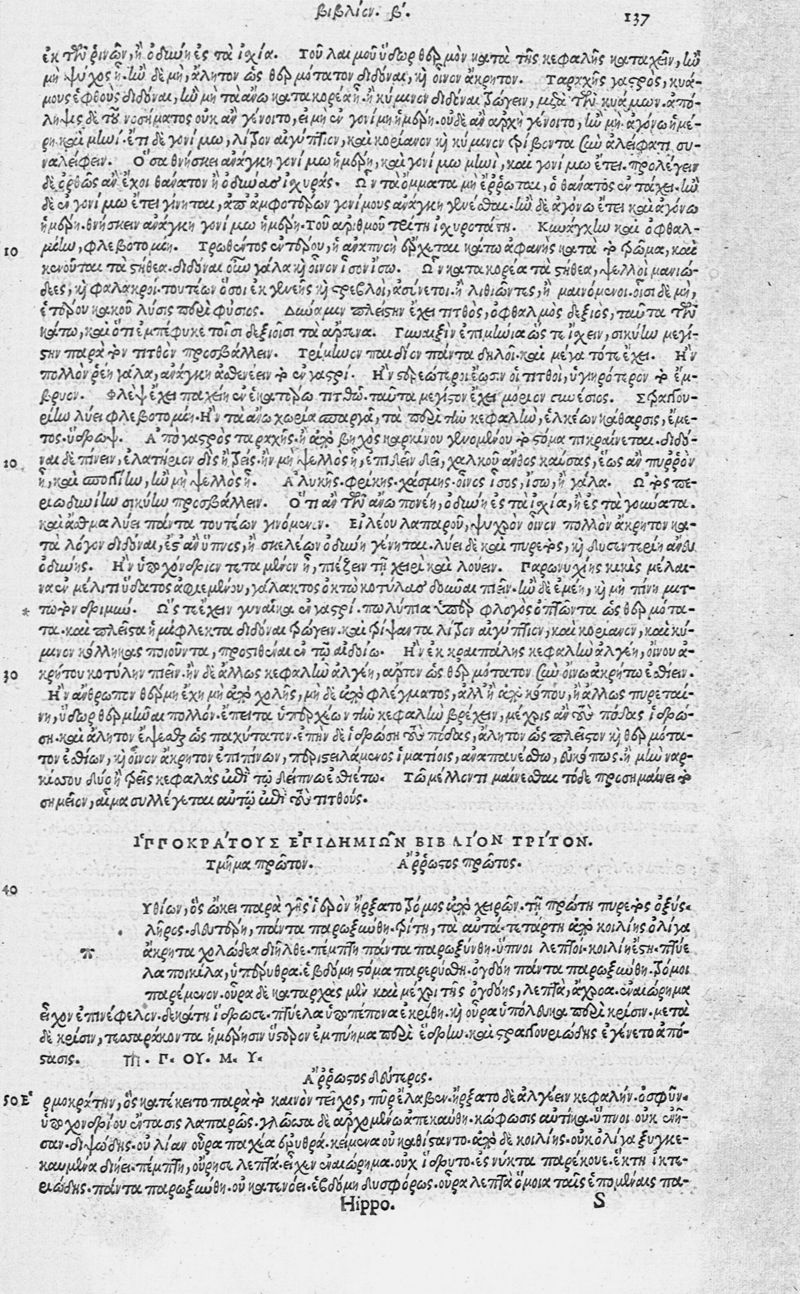 βιβλίον. β΄. 137
ἐκ τῶν ῥινῶν, ἢ ὀδύνη ἐς τὰ ἰσχία. Τοῦ λαιμοῦ ὕδωρ θερμὸν κατὰ τῆς κεφαλῆς καταχεῖν, ἢν
μὴ ψύχος ᾖ. ἢν δὲ μὴ, ἄλητον ὡς θερμότατον διδόναι, καὶ οἶνον ἄκρητον. Ταραχῆς γαστρὸς, κυά-
μους ἑφθοὺς διδόναι, ἢν μὴ τὰ ἄνω κατακορέα ᾖ. ἢ κύμινον διδόναι τρώγειν, μετὰ τῶν κυάμων. ἀπό-
ληψις δὲ τοῦ νοσήματος οὐκ ἂν γένοιτο, εἰ μὴ ἐν γονίμῃ ἡμέρῃ. οὐδὲ ἂν ἀρχὴ γένοιτο, ἢν μὴ ἀγόνῳ ἡμέ-
ρῃ καὶ μηνί. ἔτει δὲ γονίμῳ, λίτρον αἰγύπτιον, καὶ κορίανον καὶ κύμινον τρίβοντα ξὺν ἀλείφατι συ-
ναλείφειν. Ὅσα θνήσκει ἀνάγκη γονίμῳ ἡμέρῃ, καὶ γονίμῳ μηνὶ, καὶ γονίμῳ ἔτει. προλέγειν
δὲ ὀρθῶς ἂν ἔχοι θάνατον ἢ ὀδύνας ἰσχυράς. Ὧν τὰ ὄμματα μὴ ἔρρωται, ὁ θάνατος ἐν τάχει. ἢν
δὲ ἐν γονίμῳ ἔτει γίνηται, ἀπ' ἀμφοτέρων γονίμους ἀνάγκη γενέσθαι. ἢν δὲ ἀγόνῳ ἔτει καὶ ἀγόνῳ
ἡμέρῃ. θνήσκειν ἀνάγκη γονίμῳ ἡμέρῃ. τοῦ ἀριθμοῦ τρίτη ἰσχυροτάτη. Κυνάγχῳ καὶ ὀφθαλ-
10 μίῃ, φλεβοτομίη. Τρωθέντος ἐντέρου, ἡ ἀναπνοὴ ἔρχεται κάτω ἀφανὴς κατὰ τὸ τρῶμα, καὶ
κενοῦται τὰ στήθεα. διδόναι οὖν γάλα καὶ οἶνον ἴσον ἴσῳ. Ὧν κατακορέα τὰ στήθεα, ψελλοὶ μανιώ-
δεες, καὶ φαλακροί. τουτέων ὅσοι ἐκ γενεῆς καὶ στρεβλοὶ, ἀσίνετοι. ἢ λιθιῶντες, ἢ μαινόμενοι. οἷσι δὲ μὴ,
ἑτέρου κακοῦ λύσις περὶ φύσιος. Δύναμιν πλείστην ἔχει τιτθὸς, ὀφθαλμὸς δεξιὸς, ταῦτα τῶν
κάτω, καὶ ὅτι ἐμπέφυκε τοῖσι δεξιοῖσι τὰ ἄρσενα. Γυναιξὶν ἐπιμήνια ὥστε ἴσχειν, σικύην μεγί-
στην παρὰ τὸν τιτθὸν προσβάλλειν. Τρίμηνον παιδίον πάντα δηλοῖ. καὶ μέγα τότε ἔχει. Ἢν
πολλὸν ῥέῃ γάλα, ἀνάγκη ἀσθενέειν τὸ ἐν γαστρί. Ἢν στερεώτεροι ἔωσιν οἱ τιτθοὶ, ὑγιηρότερον τὸ ἔμ-
βρυον. Φλὲψ ἔχει παχείη ἐν ἑκατέρῳ τιτθῷ. ταῦτα μέγιστον ἔχει μόριον συνέσιος. Στραγγου-
ρίην λύει φλεβοτομίη. Ἢν τὰ ἄνω χωρία σπαργᾷ, τὰ περὶ τὴν κεφαλὴν, ἑλκέων κάθαρσις, ἔμε-
τος. ὕδρωψ. Ἀπὸ γαστρὸς ταραχῆς. ἢ ἀπὸ βηχὸς καρκίνου γενομένου τὸ στόμα πικραίνεται. διδό-
10 ναι δὲ πίνειν, ἐλατήριον δὶς ἢ τρίς. ἢν μὴ ψελλὸς ᾖ, ἐπιδεῖν δεῖ, χαλκοῦ ἄνθος καύσας, ἕως ἂν πυρρὸν
ᾖ, καὶ σπογγίην, ἢν μὴ ψελλὸς ᾖ. Ἀλυκῆς. φρίκης. χάσμης. οἶνος ἴσος, ἴσῳ, ἢ γάλα. Ὠτὸς πε-
ριωδυνίην σικύην προσβάλλειν. Ὅτι ἂν τῶν ἄνω πονέῃ, ὀδύνη ἐς τὰ ἰσχία, ἢ ἐς τὰ γούνατα.
καὶ ἆσθμα λύει πάντα τουτέων γινόμενον. Εἰλεοῦ λαπαροῦ, ψυχρὸν οἶνον πολλὸν ἄκρητον κα-
τὰ λόγον διδόναι, ἐς ἂν ὕπνος, ἢ σκελέων ὀδύνη γένηται. λύει δὲ καὶ πυρετὸς, καὶ δυσεντερίη ἄνευ
ὀδύνης. Ἢν ὑποχόνδριον τεταμένον ᾖ, πιέζειν τῇ χειρὶ καὶ λούειν. Παρωνυχίης κικὶς μέλαι-
να ἐν μέλιτι ὕδατος ἀφιεμένου, γάλακτος ὀκτὼ κοτύλας δοῦναι πιεῖν. ἢν δὲ ἐμέῃ, καὶ μὴ πίνῃ μυτ-
* τωτὸν δριμύν. Ὥς τε ἔχειν γυναῖκα ἐν γαστρί. πωλύπια ὑπὲρ φλογὸς ὀπτῶντα ὡς θερμότα-
τα. καὶ πλεῖστα ἡμίφλεκτα διδόναι τρώγειν. καὶ τρίψαντα λίτρον αἰγύπτιον, καὶ κορίανον, καὶ κύ-
μινον κόλληκας ποιοῦντα, προστιθέναι ἐν τῷ αἰδοίῳ. Ἢν ἐκ κραιπάλης κεφαλὴν ἀλγέῃ, οἴνου ἀ-
30 κρήτου κοτύλην πιεῖν. ἢν δὲ ἄλλως κεφαλὴν ἀλγέῃ, ἄρτον ὡς θερμότατον ξὺν οἴνῳ ἀκρήτῳ ἐσθίειν.
Ἢν ἄνθρωπον θέρμη ἔχῃ μὴ ἀπὸ χολῆς, μὴ δὲ ἀπὸ φλέγματος, ἀλλ' ἢ ἀπὸ κόπου, ἢ ἄλλως πυρεταί-
νῃ, ὕδωρ θερμῆναι πολλόν. ἔπειτα ὑποχέων τὴν κεφαλὴν βρέχειν, μέχρις ἂν τοὺς πόδας ἱδρώ-
σῃ. καὶ ἄλητον ἕψεσθω ὡς παχύτατον. ἐπὴν δὲ ἱδρώσῃ τοὺς πόδας, ἄλητον ὡς πλεῖστον καὶ θερμότα-
τον ἐσθίων, καὶ οἶνον ἄκρητον ἐπιπίνων, περιστειλάμενος ἱματίοις, ἀναπαυέσθω, εὐκόπως. ἢ μὴν ναρ-
κίσσου δύο ἢ τρεῖς κεφαλὰς ἐπὶ τῷ δείπνῳ ἐσθιέτω. Τῷ μέλλοντι μαίνεσθαι τόδε προσημαίνει τὸ
σημεῖον, αἷμα συλλέγεται αὐτῷ ἐπὶ τοὺς τιτθούς.
ΙΠΠΟΚΡΑΤΟΥΣ ΕΠΙΔΗΜΙΩΝ ΒΙΒΛΙΟΝ ΤΡΙΤΟΝ.
Τμῆμα πρῶτον. Ἄρρωστος πρῶτος.
40
Υθίων, ὃς ᾤκει παρὰ γῆς ἱερὸν ἤρξατο τρόμος ἀπὸ χειρῶν. τῇ πρώτῃ πυρετὸς ὀξὺς.
λῆρος. δευτέρῃ, πάντα παρωξύνθη. τρίτῃ, τὰ αὐτά. τετάρτῃ ἀπὸ κοιλίης ὀλίγα
π ἄκρητα χολώδεα διῆλθε. πέμπτῃ πάντα παρωξύνθη. ὕπνοι λεπτοί. κοιλίη ἔστη. πτύε-
λα ποικίλα, ὑπέρυθρα. ἑβδόμῃ στόμα παρειρύσθη. ὀγδόῃ πάντα παρωξύνθη. τρόμοι
παρέμενον. οὖρα δὲ κατ' ἀρχὰς μὲν καὶ μέχρι τῆς ὀγδόης, λεπτὰ, ἄχροα. ἐναιώρημα
εἶχον ἐπινέφελον. δεκάτῃ ἵδρωσε. πτύελα ὑποπέπονα ἐκρίθη. καὶ οὖρα ὑπόλευκα περὶ κρίσιν. μετὰ
δὲ κρίσιν, τεσσαράκοντα ἡμέρῃσιν ὕστερον ἐμπύημα περὶ ἕδρην. καὶ στραγγουριώδης ἐγένετο ἀπό-
στασις. Π. Γ. ΟΥ. Μ. Υ.
Ἄρρωστος δεύτερος.
50 Ερμοκράτην, ὃς κατέκειτο παρὰ τὸ καινὸν τεῖχος, πῦρ ἔλαβεν. ἤρξατο δὲ ἀλγέειν κεφαλήν. ὀσφῦν.
ὑποχονδρίου ἔντασις λαπαρῶς. γλῶσσα δὲ ἀρχομένῳ ἀπεκαύθη. κώφωσις αὐτίκα. ὕπνοι οὐκ ἐνῆ-
σαν. διψώδης. οὐ λίαν οὖρα παχέα ἐρυθρὰ. κείμενα οὐ καθίσταντο. ἀπὸ δὲ κοιλίης. οὐκ ὀλίγα ξυγκε-
καυμένα διῄει. πέμπτῃ, οὔρησε λεπτὰ. εἶχεν ἐναιώρημα. οὐχ ἵδρυτο. ἐς νύκτα παρέκουσε. ἕκτῃ ἰκτε-
ριώδης. πάντα παρωξύνθη. οὐ κατενόει. ἑβδόμῃ δυσφόρως. οὖρα λεπτὰ ὅμοια ταῖς ἑπομέναις πα-
Hippo. S